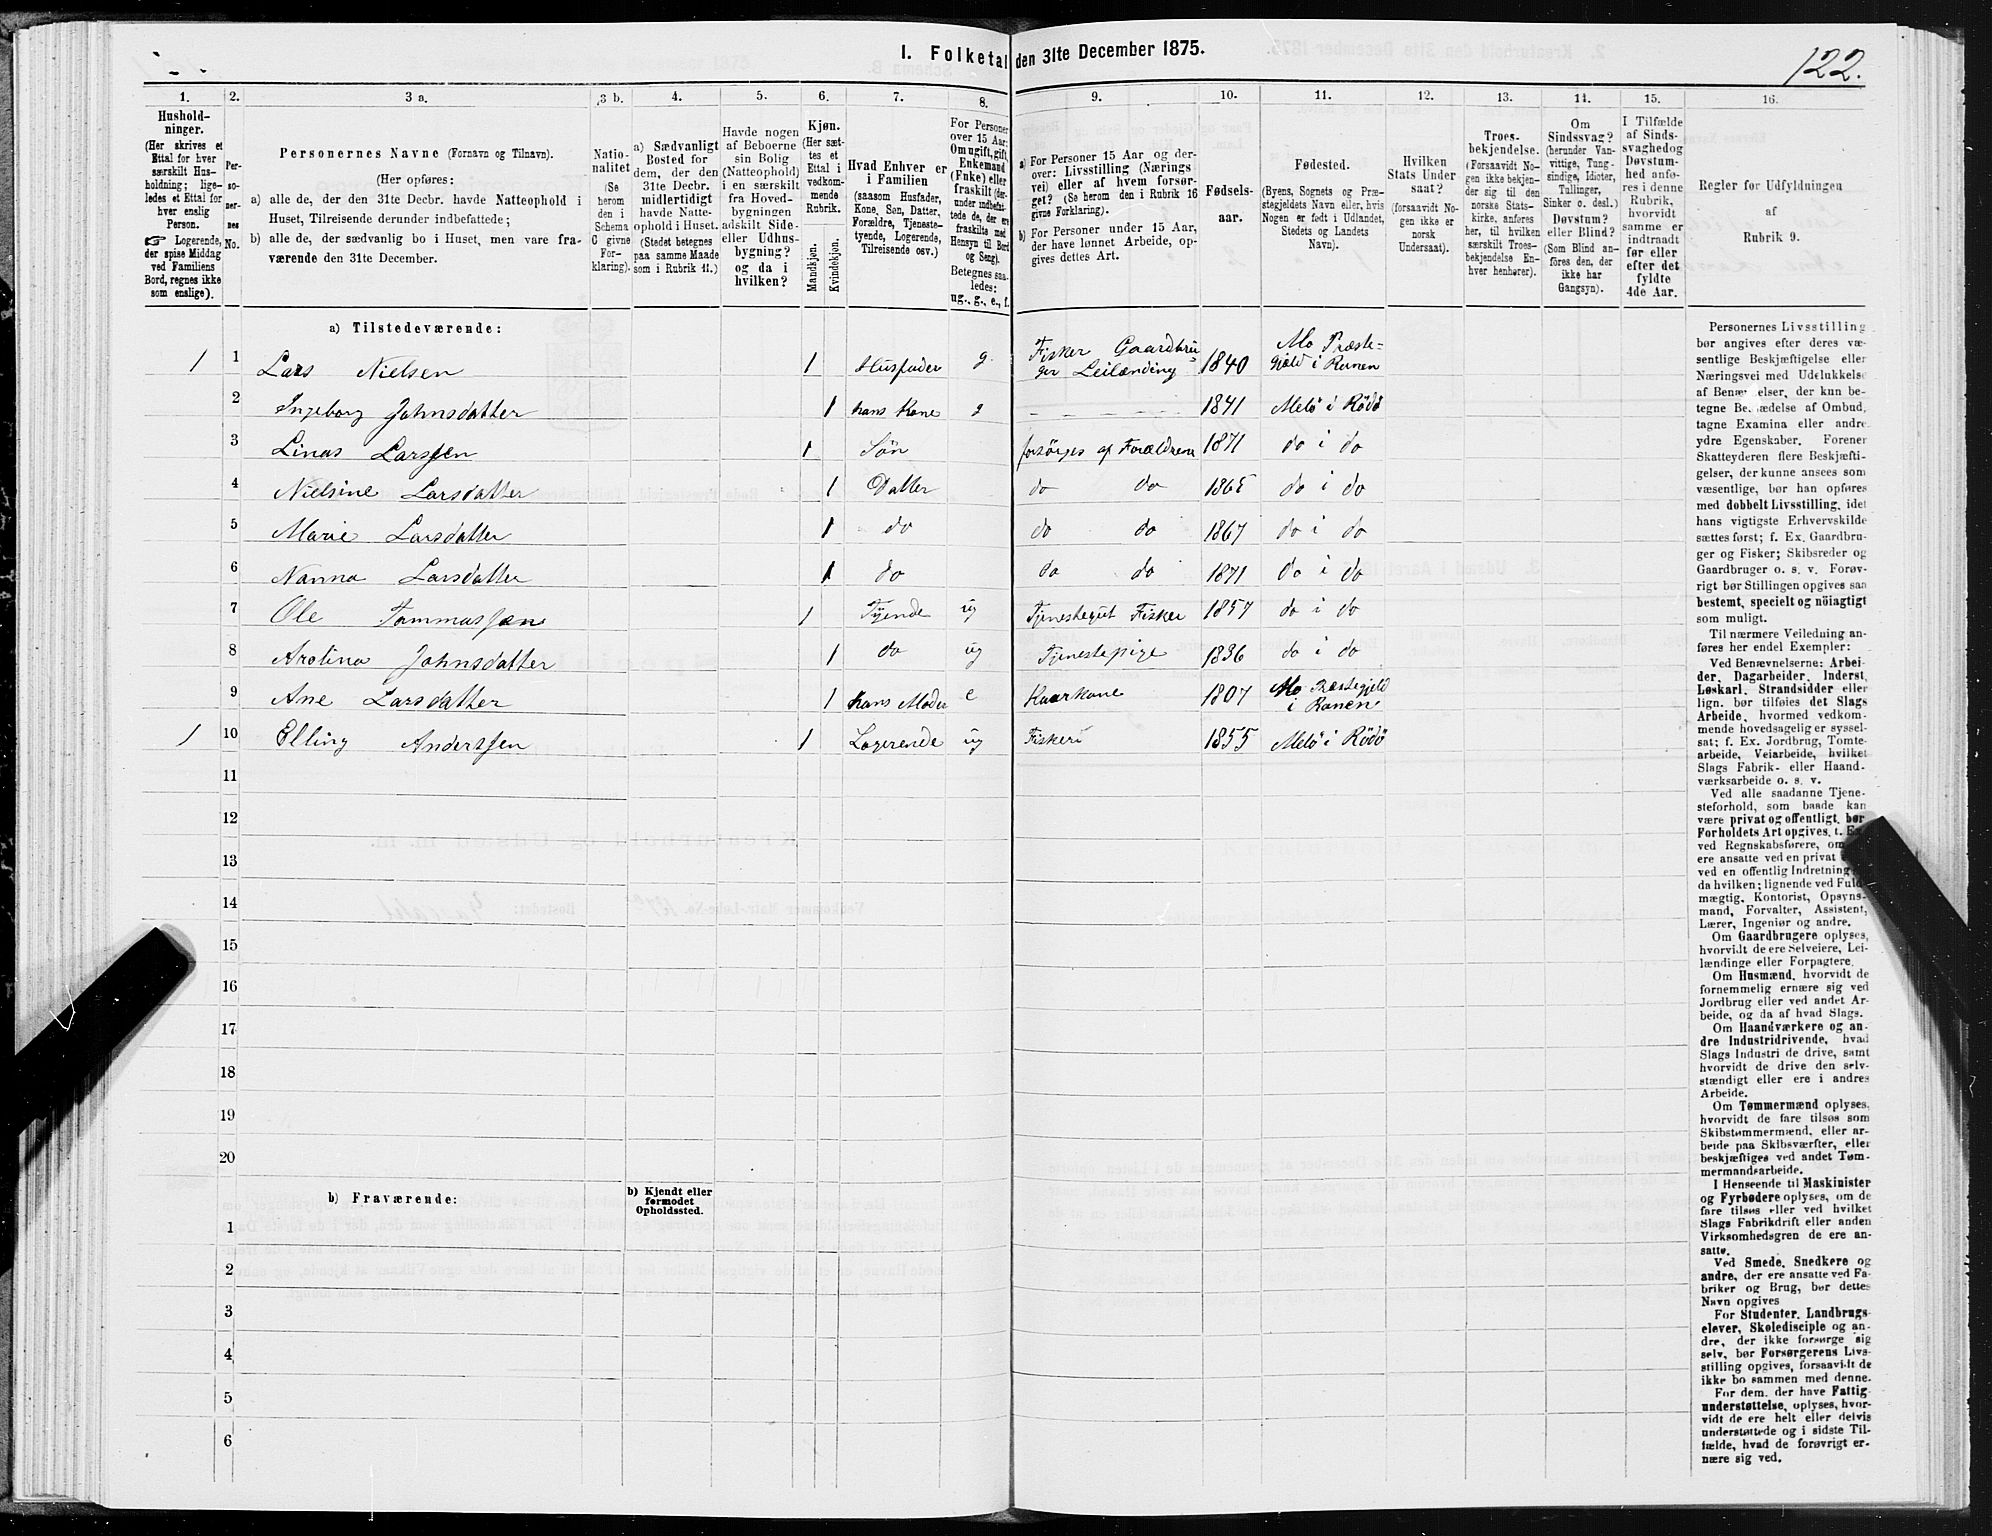 I. Folketal den 31te December 1875.
122.
1.
2.
3 a.
3 b.
4.
5.
6.
7.
8.
9.
10.
11.
12.
13.
14.
15.
16.
Hushold-
ninger.
(Her skrives et
Ettal for hver
særskilt Hus-
holdning; lige-
ledes et Ettal for
hver enslig
Person.
☞ Logerende,
der spise Middag
ved Familiens
Bord, regnes ikke
som enslige).
Per-
so-
ner-
nes
No.
Personernes Navne (Fornavn og Tilnavn).
(Her opføres:
a) alle de, der den 31te Decbr. havde Natteophold i
Huset, Tilreisende derunder indbefattede;
b) alle de, der sædvanlig bo i Huset, men vare fra-
værende den 31te December.
Natio-
nalitet
(Se
herom
den i
Schema
C givne
For-
klaring).
a) Sædvanligt
Bosted for
dem, der den
31te Decbr.
midlertidigt
havde Natte-
ophold i Huset.
(Stedet betegnes
paa samme Maade
som i Rubrik 11.)
Havde nogen
af Beboerne
sin Bolig
(Natteophold)
i en særskilt
fra Hoved-
bygningen
adskilt Side-
eller Udhus-
bygning?
og da i
hvilken?
Kjøn.
(Her sæt-
tes et
Ettal i
vedkom-
mende
Rubrik.
Mandkjøn.
Kvindekjøn.
Hvad Enhver er
i Familien
(saasom Husfader,
Kone, Søn, Datter,
Forældre, Tjeneste-
tyende, Logerende,
Tilreisende osv.)
For Personer
over 15 Aar:
Om ugift, gift,
Enkemand
(Enke) eller
fraskilt (der-
under indbefat-
tede de, der ere
fraskilte med
Hensyn til Bord
og Seng).
Betegnes saa-
ledes:
ug., g., e., f.
a) For Personer 15 Aar og der-
over: Livsstilling (Nærings-
vei) eller af hvem forsør-
get? (Se herom den i Rubrik 16
givne Forklaring).
b) For Personer under 15 Aar,
der have lønnet Arbeide, op-
gives dettes Art.
Fødsels-
aar.
Fødested.
(Byens, Sognets og Præ-
stegjeldets Navn eller, hvis
Nogen er født i Udlandet,
Stedets og Landets
Navn).
Hvilken
Stats Under
saat?
(forsaavidt No-
gen ikke er
norsk
Undersaat).
Troes-
bekjendelse.
(Forsaavidt No-
gen ikke bekjen-
der sig til den
norske Stats-
kirke, anføres
her, til hvilken
særskilt Troes-
bekjendelse En-
hver henhører).
Om
Sindssvag?
(herunder Van-
vittige, Tung-
sindige, Idioter,
Tullinger,
Sinker o. desl.)
Døvstum?
eller Blind?
(Som Blind an-
føres den, der
ikke har
Gangsyn).
I Tilfælde
af Sinds-
svaghed og
Døvstum-
hed anfø-
res i denne
Rubrik,
hvorvidt
samme er
indtraadt
før eller
efter det
fyldte
4de Aar.
Regler for Udfyldningen
af
Rubrik 9.
a) Tilstedeværende:
1 1 Lars Nielsen 1 Husfader g Fisker Gaardbru-
ger Leilænding 1840 Mo Præste-
gjæld i Ranen
2 Ingeborg Johnsdatter 1 hans Kone g 1841 Melö i Rödö
3 Linas Larssen 1 Sön forsörges af Forældrene 1871 do i do
4 Nielsine Larsdatter 1 Datter do do 1865 do i do
5 Marie Larsdatter 1 do do do 1867 do i do
6 Nanna Larsdatter 1 do do do 1871 do i do
7 Ole Tommassen 1 Tyende ug Tjenestegut Fisker 1857 do i do
8 Arolina Johnsdatter 1 do ug Tjenestepige 1836 do i do
9 Ane Larsdatter 1 hans Moder e Kaarkone 1807 Mo Præstegjeld
i Ranen
1 10 Elling Anderssen 1 Logerende ug Fiskeri 1855 Melö i Rödö
11
12
13
14
15
16
17
18
19
20
b) Fraværende:
b) Kjendt eller
formodet
Opholdssted.
1
2
3
4
5
6
Personernes Livsstilling
bør angives efter deres væ-
sentlige Beskjæftigelse eller
Næringsvei med Udelukkelse
af Benævnelser, der kun be-
tegne Beklædelse af Ombud,
tagne Examina eller andre
ydre Egenskaber. Forener
Skatteyderen flere Beskjæfti-
gelser, der kunne ansees som
væsentlige, bør han opføres
med dobbelt Livsstilling, idet
hans vigtigste Erhvervskilde
sættes først; f. Ex. Gaardbru-
ger og Fisker; Skibsreder og
Gaardbruger o. s. v. Forøv-
rigt bør Stillingen opgives saa
bestemt, specielt og nöiagtigt
som muligt.
Til nærmere Veiledning an-
føres her endel Exempler:
Ved Benævnelserne: Arbei-
der, Dagarbeider, Inderst,
Løskarl, Strandsidder eller
lign. bør tilføies det Slags
Arbeide, hvormed vedkom-
mende hovedsagelig er syssel-
sat; f. Ex. Jordbrug, Tomte-
arbeide, Veiarbeide, hvilket
Slags Fabrik- eller Haand-
værksarbeide o. s. v.
Ved alle saadanne Tjene-
steforhold, som baade kan
være privat og offentligt, bør
Forholdets Art opgives, t. Ex.
ved Regnskabsførere, om
ere ansatte ved en privat
ved en offentlig Indretning
da hvilken; lignende ved Fuld-
mægtig, Kontorist, Opsyns-
mand, Forvalter, Assistent,
Lærer, Ingeniør og andre.
Om Gaardbrugere oplyses,
hvorvidt de ere Selveiere, Lei-
lændinge eller Forpagtere.
Om Husmænd, hvorvidt de
fornemmelig ernære sig ved
Jordbrug eller ved andet Ar-
beide, og da af hvad Slags.
Om Haandværkere og an-
dre Industridrivende, hvad
Slags Industri de drive, samt
hvorvidt de drive den selv-
stændigt eller ere i andres
Arbeide.
Om Tømmermænd oplyses,
hvorvidt de fare tilsøs som
Skibstømmermænd, eller ar-
beide paa Skibsværfter, eller
beskjæftiges ved andet Tøm-
mermandsarbeide.
I Henseende til Maskinister
og Fyrbødere oplyses, om de
fare tilsøs eller ved hvilket
Slags Fabrikdrift eller anden
Virksomhedsgren de ere an-
satte.
Ved Smede, Snedkere og
andre, der ere ansatte ved Fa-
briker og Brug, bør dettes
Navn opgives
For Studenter, Landbrugs-
elever, Skoledisciple og an-
dre, der ikke forsørge sig
selv, bør Forsørgerens Livs-
stilling opgives, forsaavidt de
ikke bo sammen med denne.
For dem, der have Fattig-
understøttelse, oplyses, hvor-
vidt de ere helt eller delvis
understøttede og i sidste Til-
fælde, hvad de forøvrigt er-
nære sig ved.